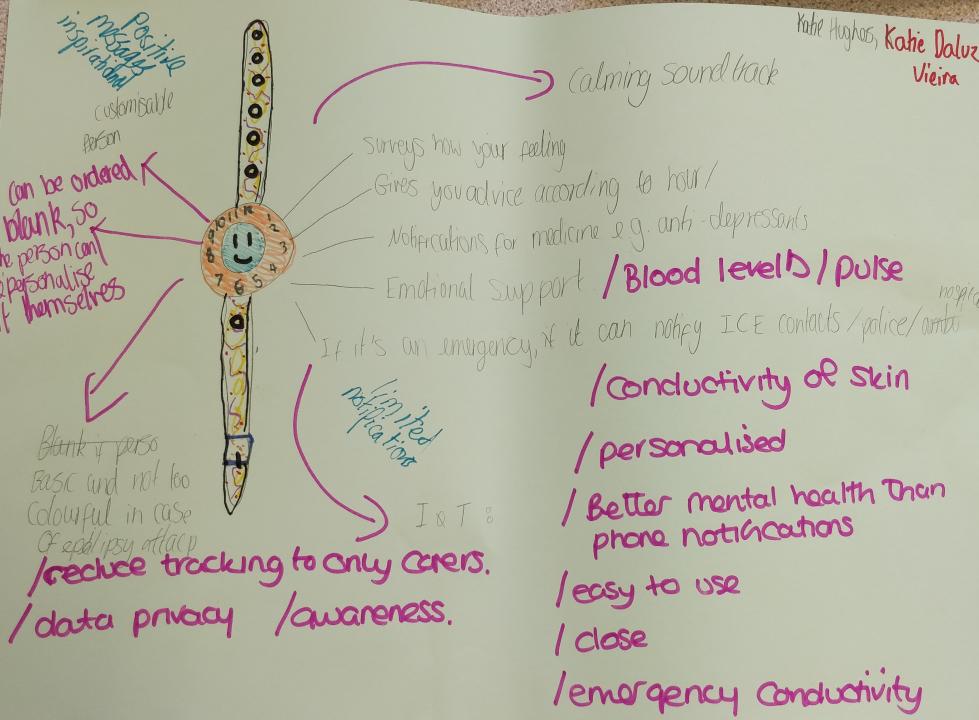 Positive
messages
inspirational
customisable
person
Katie Hughes, Katie Daluz
Vieira
Calming Soundtrack
can be ordered
blank, so
the person can
personalise
it themselves
11 12 1 2 3 4 5 6 7 8 9 10
Surveys how your feeling
Gives you advice according to hour/
Notifications for medicine e.g. anti-depressants
Emotional support /Blood levels /pulse
If it's an emergency, it can notify ICE contacts/police/
limited
notifications
/conductivity of skin
/personalised
/Better mental health Than
phone notifications
/easy to use
/close
/emergency conductivity
Blank if perso
Basic and not too
Colourful in case
Of epilipsy attack
I & T :
/reduce tracking to only carers.
/data privacy /awareness.